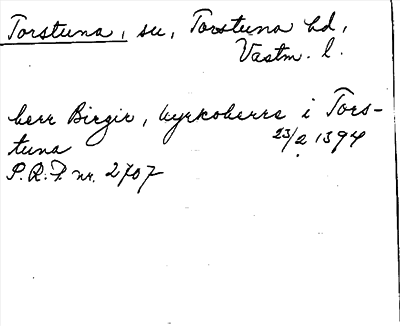 Torstuna, sn, Torstuna hd,
Västm. l.
herr Birgir, kyrkoherre i Tors-
tuna 23/2 1394
P.R.F. nr. 2707